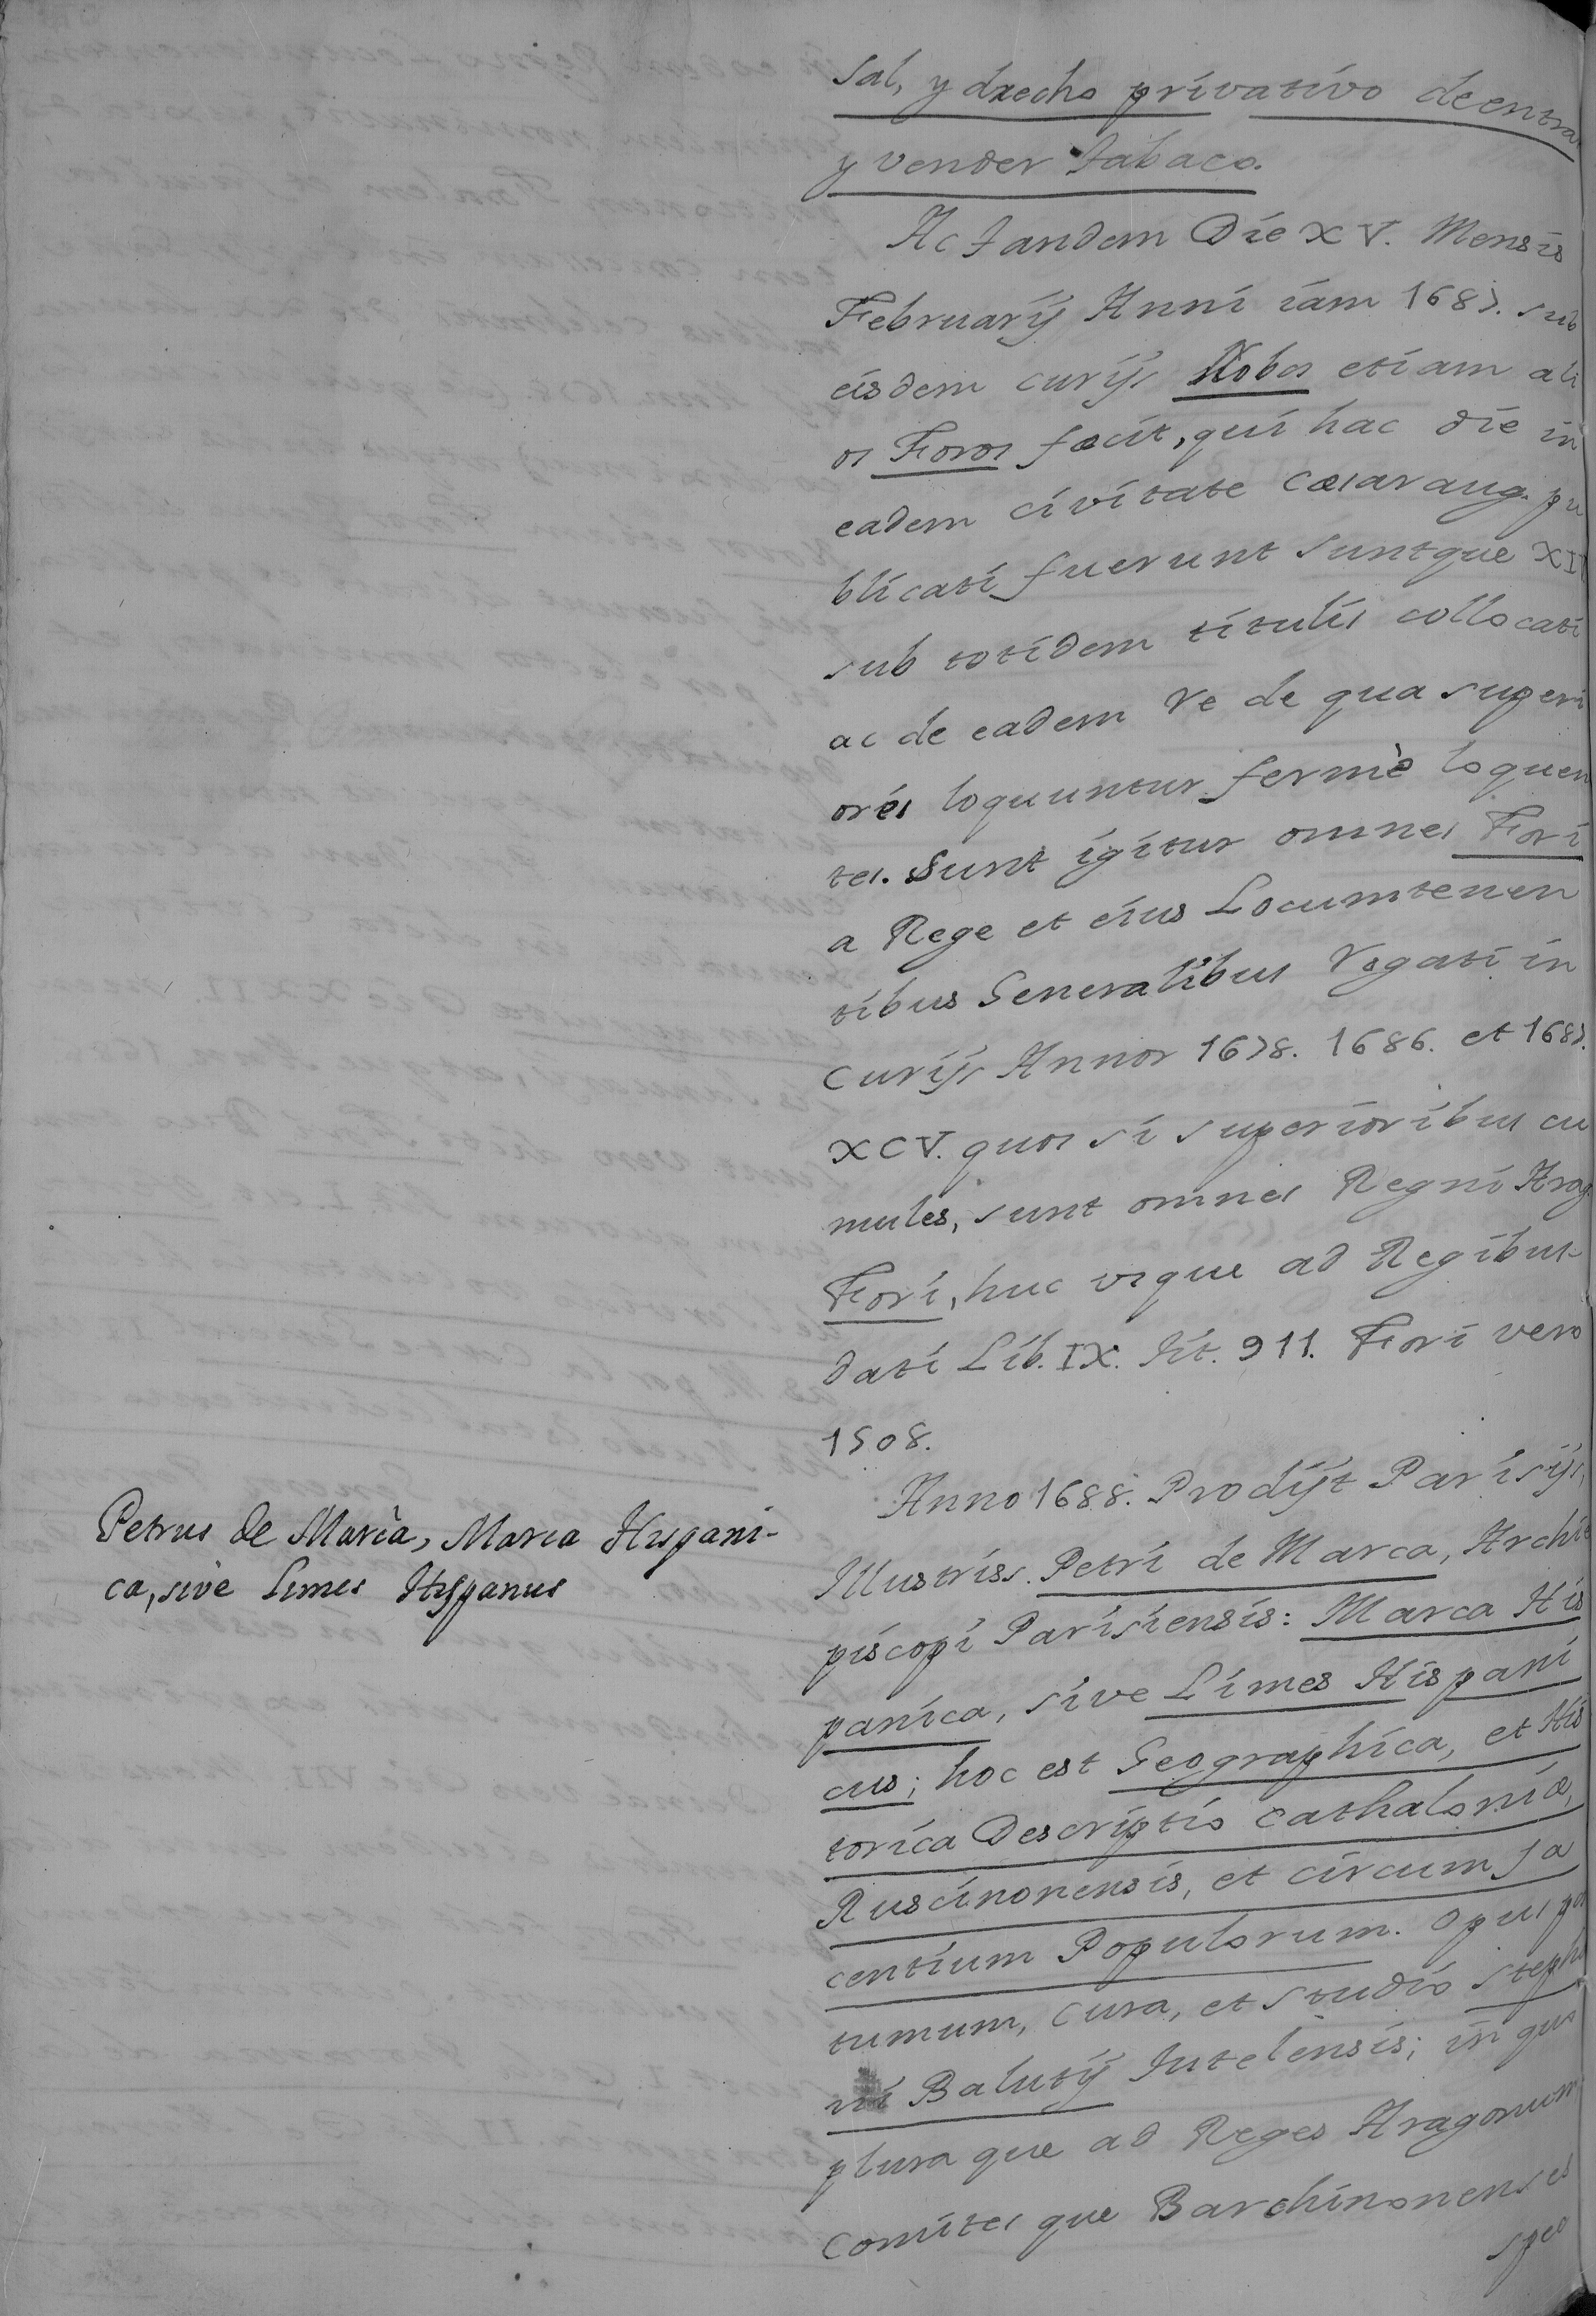 sal, y drecho privativo deentrar
y vender tabaco.
Ac tandem Die XV. Mensis
Februarÿ Anni iam 1687. sub
eisdem curÿs Nobos etiam ali
os Foros fecit, qui hac die in
eadem civitate Cæsaraug. pu
blicati fuerunt suntque XII
sub totidem titulis collocati
ac de eadem re de qua superi
ores loquuntur fermè loquen
tes. Sunt igitur omnes Fori
a Rege et eius Locumtenen
tibus Generalibus rogati in
curÿs Annor 1678. 1686. et 1687.
XCV. quos si superioribus cu
mules, sunt omnes Regni Arag
Fori, huc usque ad Regibus
dati Lib. IX. tit. 911. Fori vero
1508.
Anno 1688. Prodÿt Parisÿs,
Illustriss. Petri de Marca, Archie
piscopi Parisiensis: Marca His
panica, sive Limes Hispani
cus; hoc est Geographica, et His
torica Descriptio Cathaloniæ,
Ruscinonensis, et circum Ja
centium Populorum. Opus po
tumum, cura, et studio Stepha
ni Balutÿ Tutelensis; in quo
plura que ad Reges Aragonum
Comites que Barchinonenses
spec
Petrus de Marca, Marca Hispani-
ca, sive Limes Hispanus